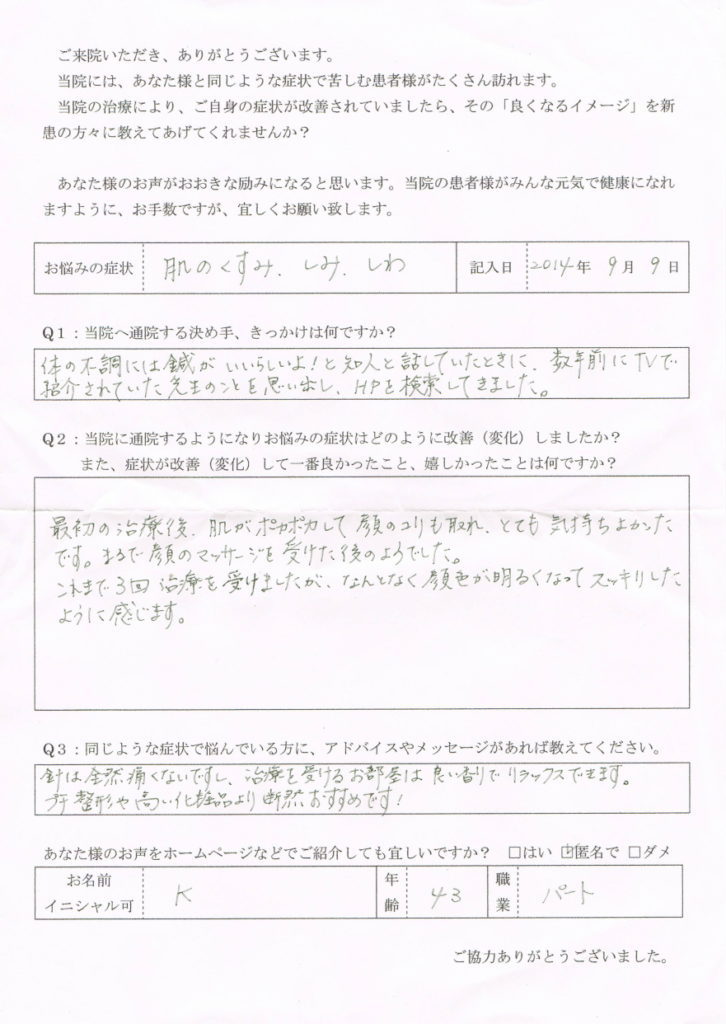 ご来院いただき、ありがとうございます。
当院には、あなた様と同じような症状で苦しむ患者様がたくさん訪れます。
当院の治療により、ご自身の症状が改善されていましたら、その「良くなるイメージ」を新
患の方々に教えてあげてくれませんか？
あなた様のお声がおおきな励みになると思います。当院の患者様がみんな元気で健康になれ
ますように、お手数ですが、宜しくお願い致します。
お悩みの症状 肌のくすみ、しみ、しわ 記入日 2014年 9月 9日
Q1：当院へ通院する決め手、きっかけは何ですか？
体の不調には鍼がいいらしいよ！と知人と話していたときに、数年前にTVで
紹介されていた先生のことを思い出し、HPを検索してきました。
Q2：当院に通院するようになりお悩みの症状はどのように改善（変化）しましたか？
また、症状が改善（変化）して一番良かったこと、嬉しかったことは何ですか？
最初の治療後、肌がポカポカして顔のコリも取れ、とても気持ちよかった
です。まるで顔のマッサージを受けた後のようでした。
これまで3回治療を受けましたが、なんとなく顔色が明るくなってスッキリした
ように感じます。
Q3：同じような症状で悩んでいる方に、アドバイスやメッセージがあれば教えてください。
針は全然痛くないですし、治療を受けるお部屋は良い香りでリラックスできます。
プチ整形や高い化粧品より断然おすすめです！
あなた様のお声をホームページなどでご紹介しても宜しいですか？ □はい ☑匿名で □ダメ
お名前 イニシャル可 K 年齢 43 職業 パート
ご協力ありがとうございました。